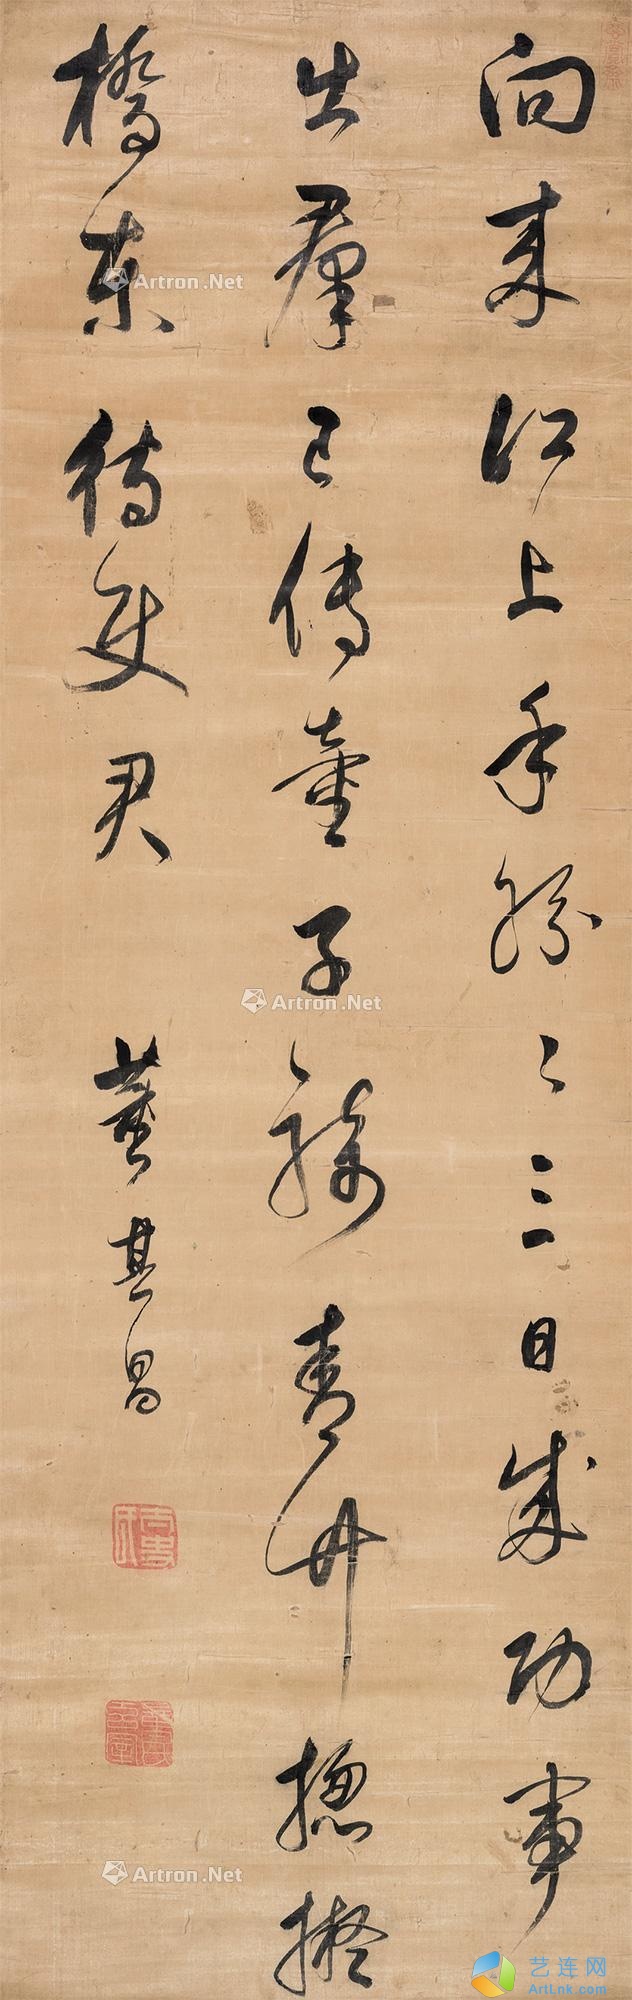 向来江上手纷〻三日成功事
出群已傳童子騎青竹揔擬
橋東待使君
董其昌
Artron.Net
Artron.Net
Artron.Net
艺连网
ArtLnk.com